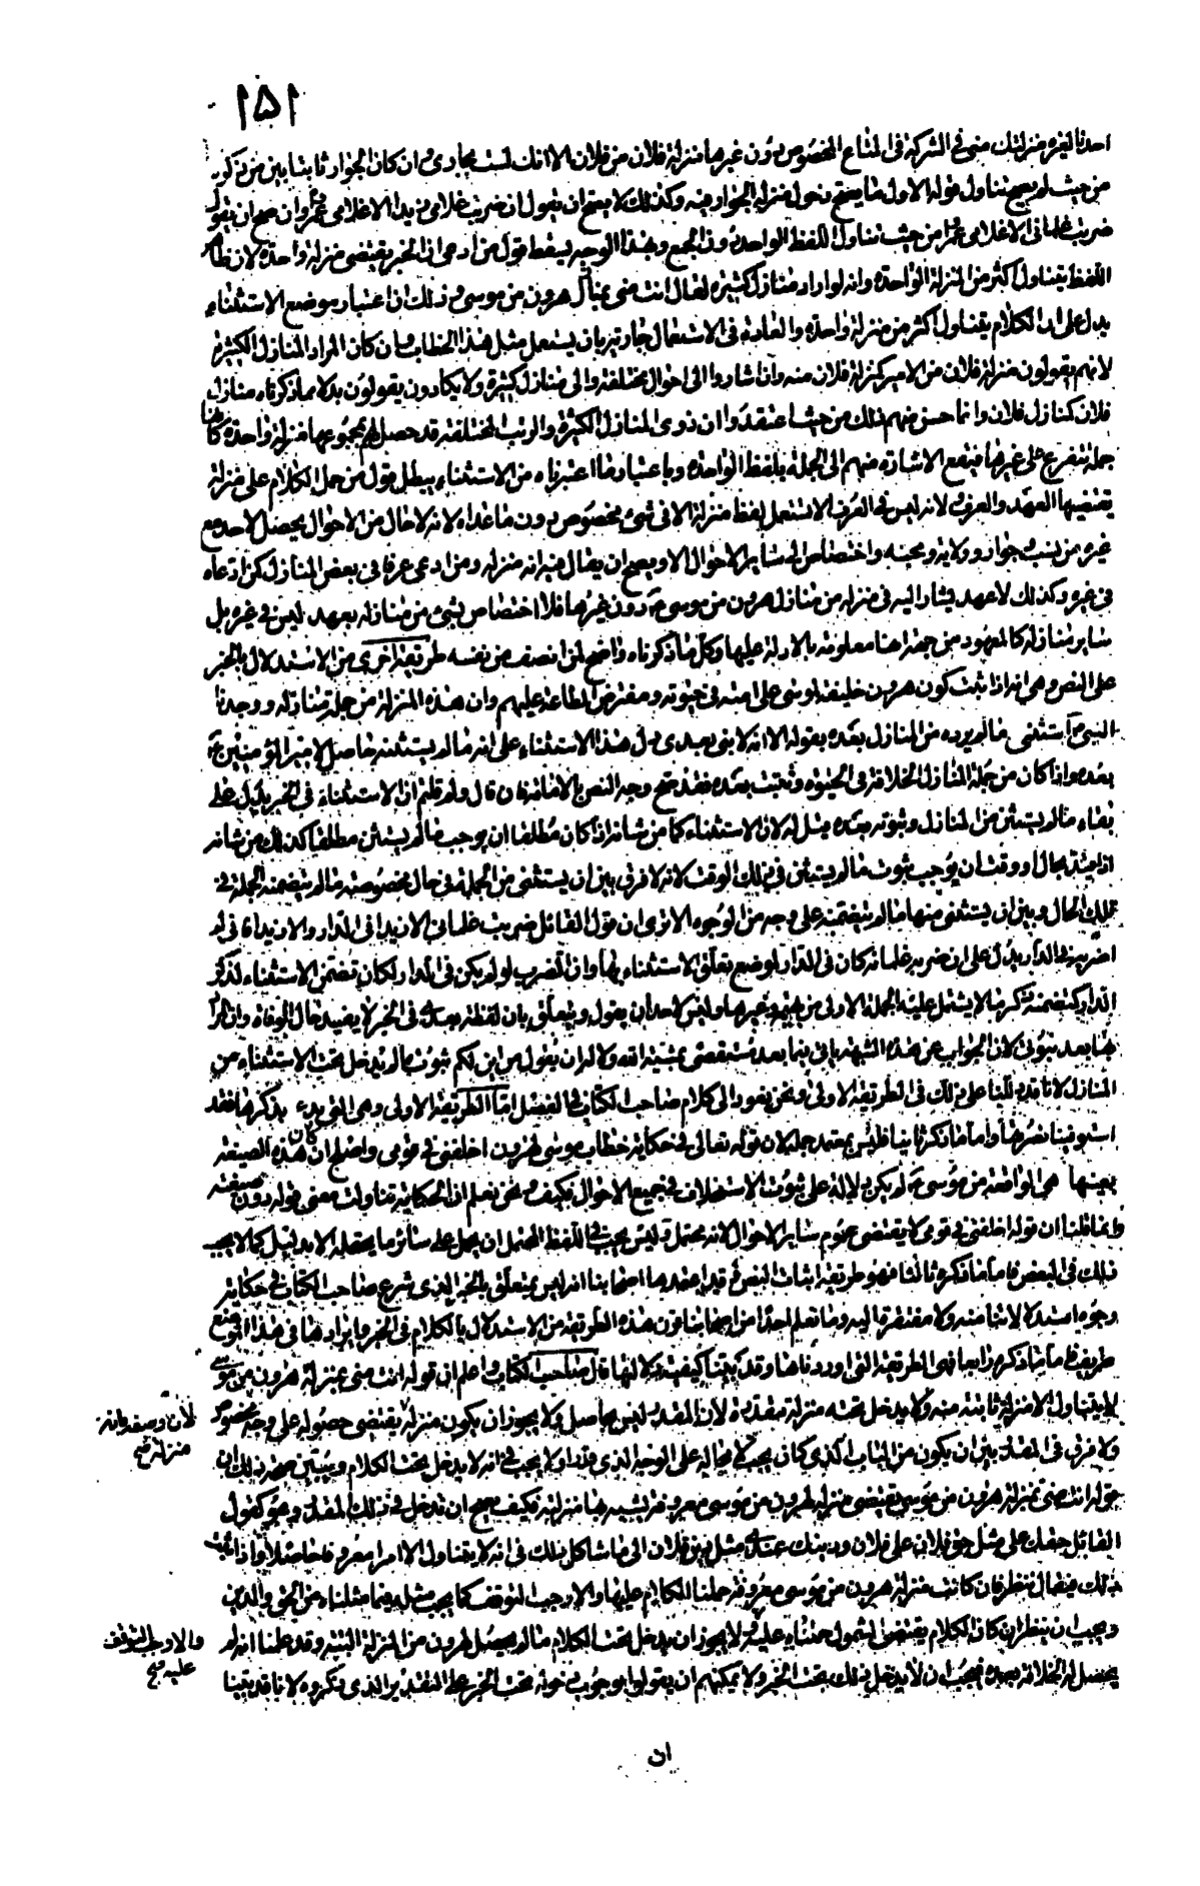 ١٥١
احدنا لغيره منزلتك منى فى الشركة فى المتاع المخصوص دون غيرها منزلة فلان من فلان الا انك لست بجارى وان كان الجوار ثابتا بينه وبين من ذكره
من حيث لم يصح تناول قوله الاول ما يصح دخول منزلة الجوار فيه وكذلك لا يصح ان يقول ان ضربت غلامى زيدا الا غلامى عمروا وان صح ان يقول
ضربت غلمانى الا غلامى عمرا من حيث تناول اللفظ الواحد دون الجمع وبهذا الوجه يسقط قول من ادعى ان الخبر يقتضى منزلة واحدة لان ظاهر
اللفظ يتناول اكثر من المنزلة الواحدة وانه لو اراد منازل كثيرة لقال انت منى بمنازل هرون من موسى وذلك ان اعتبار موضع الاستثناء
يدل على ان الكلام يتناول اكثر من منزلة واحدة والعادة فى الاستعمال جارية بان يستعمل مثل هذا الخطاب وان كان المراد المنازل الكثيرة
لانهم يقولون منزلة فلان من الامير كمنزلة فلان منه وان اشاروا الى احوال مختلفة والى منازل كثيرة ولا يكادون يقولون بدلا مما ذكرناه منازل
فلان كمنازل فلان وانما حسن منهم ذلك من حيث اعتقدوا ان ذوى المنازل الكثيرة والرتب المختلفة قد حصل لهم بمجموعها منزلة واحدة كانها
جملة تتفرع على غيرها فتقع الاشارة منهم الى الجملة بلفظ الواحدة وباعتبار ما اعتبرناه من الاستثناء يبطل قول من حمل الكلام على منزلة
يقتضيها العهد والعرف ولانه ليس فى العرف الا تستعمل لفظ منزلة الا فى شىء مخصوص دون ما عداه لانه لا حال من الاحوال يحصل لاحد مع
غيره من نسب وجوار وولاية ومحبة واختصاص الى سائر الاحوال الا ويصح ان يقال فيه انه منزلة ومن ادعى عرفا فى بعض المنازل كمن ادعاه
فى غيره وكذلك لا عهد يشار اليه فى منزلة من منازل هرون من موسى ع دون غيرها فلا اختصاص بشىء من منازله بعهد ليس فى غيره بل
سائر منازله كالمعهود من جهة انها معلومة بالادلة عليها وكل ما ذكرناه واضح لمن انصف من نفسه طريقة اخرى من الاستدلال بالخبر
على النص وهى انه اذا ثبت كون هرون خليفة لموسى على امته فى حيوته ومفترض الطاعة عليهم وان هذه المنزلة من جملة منازله ووجدنا
النبى ص استثنى ما لم يرده من المنازل بعده بقوله الا انه لا نبى بعدى دل هذا الاستثناء على ان ما لم يستثنه حاصل لامير المؤمنين ع
بعده واذا كان من جملة المنازل الخلافة فى الحيوة وثبتت بعده فقد صح وجه النص بالامامة فان قال ولم قلتم ان الاستثناء فى الخبر يدل على
بقاء ما لم يستثن من المنازل وثبوته بعده قيل له لان الاستثناء كما من شانه اذا كان مطلقا ان يوجب ما لم يستثن مطلقا كذلك من شانه
اذا قيد بحال او وقت ان يوجب ثبوت ما لم يستثن فى ذلك الوقت لانه لا فرق بين ان يستثنى من الجملة فى حال مخصوصة ما لم تتضمنه الجملة فى
تلك الحال وبين ان يستثنى منها ما لم تتضمنه على وجه من الوجوه الا ترى ان قول القائل ضربت غلمانى الا زيدا فى الدار والا زيدا فانى لم
اضربه فى الدار يدل على ان ضربه غلمانه كان فى الدار لموضع تعلق الاستثناء بها وان الضرب لو لم يكن فى الدار لكان تضمن الاستثناء لذكر
الدار كتضمنه ذكر ما لا يشتمل عليه الجملة الاولى من بهيمة وغيرها وليس لاحد ان يقول ويتعلق بان لفظة بعدى فى الخبر لا يفيد حال الوفاة وان المراد
بها بعد نبوتى لان الجواب عن هذه الشبهة ياتى فيما بعد مستقصى بمشية الله ولا له ان يقول من اين لكم ثبوت ما لم يدخل تحت الاستثناء من
المنازل لانا قد دللنا على ذلك فى الطريقة الاولى ونحن نعود الى كلام صاحب الكتاب فى الفصل اما الطريقة الاولى وهى التى بدء بذكرها فقد
استوفينا نصرتها واما ما ذكره ثانيا فليس بمعتمد جملة لان قوله تعالى فى حكاية خطاب موسى لهرون اخلفنى فى قومى واصلح ان كان هذه الصيغة
بعينها هى الواقعة من موسى ع لم يكن دلالة على ثبوت الاستخلاف فى جميع الاحوال فكيف ونحن نعلم ان الحكاية تناولت معنى قوله دون صيغته
وانما قلنا ان قوله اخلفنى فى قومى لا يقتضى عموم سائر الاحوال لانه محتمل وليس يجب فى اللفظ المحتمل ان يحمل على سائر ما يحتمله الا بدليل كما لا يجب
ذلك فى البعض فاما ما ذكره ثالثا فهو طريقة اثبات النص قد اعتمدها اصحابنا انه ليس بمتعلق بالخبر الذى شرع صاحب الكتاب فى حكاية
وجوه استدلالاتنا منه ولا مفتقرة اليه وما نعلم احدا من اصحابنا قرن هذه الطريقة من الاستدلال بالكلام فى الخبر وايرادها فى هذا الموضع
طريف فاما ما ذكره رابعا فهى الطريقة التى اوردناها وقد بينا كيفية دلالتها قال صاحب الكتاب واعلم ان قوله انت منى بمنزلة هرون من موسى
لا يتناول الا منزلة ثابتة منه ولا يدخل تحته منزلة مقدرة لان المقدر ليس بحاصل ولا يجوز ان يكون منزلة يقتضى حصوله على وجه مخصوص
لان وصفه بانه
منزلة صح
ولا فرق فى المقدر بين ان يكون من الباب الذى كان يجب لا محالة على الوجه الذى قدر او لا يجب فى انه لا يدخل تحت الكلام ويبين صحة ذلك ان
قوله انت منى بمنزلة هرون من موسى يقتضى منزلة لهرون من موسى معروفة يشبه بها منزلته فكيف يصح ان تدخل فى ذلك المقدر وهو كقول
القائل حقك على مثل حق فلان على فلان ودينك عندى مثل دين فلان الى ما شاكل ذلك فى انه لا يتناول الا امرا معروفا حاصلا واذا ثبت
ذلك فيقال ننظر فان كانت منزلة هرون من موسى معروفة حملنا الكلام عليها والا وجب التوقف كما يجب مثله فيما مثلناه من الحق والدين
ويجب ان ينظر ان كان الكلام يقتضى الشمول حملناه عليه ولا يجوز ان يدخل تحت الكلام ما لم يحصل لهرون من المنزلة البتة وقد علمنا انه لم
والا وجب التوقف
عليه صح
يحصل له الخلافة بعده فيجب ان لا يدخل ذلك تحت الخبر ولا يمكنهم ان يقولوا بوجوب دخوله تحت الخبر على التقدير الذى نذكره لانا قد بينا
ان